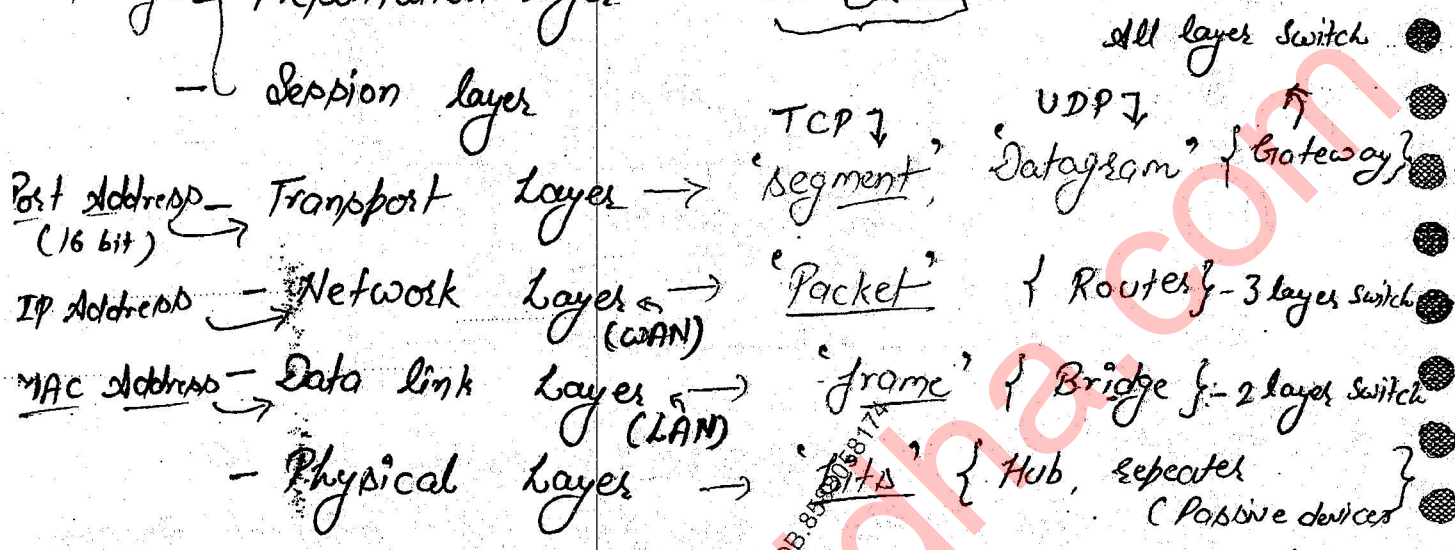 All layer Switch
- Session layer
TCP ↓ UDP ↓ ↑
Port Address - Transport Layer → 'segment', 'Datagram' { Gateway }
(16 bit)
IP Address - Network Layer → 'Packet' { Router } - 3 layer switch
(WAN)
MAC Address - Data link Layer → 'frame' { Bridge } - 2 layer switch
(LAN)
- Physical Layer → 'Bits' { Hub, repeater
(Passive devices }
dha.com